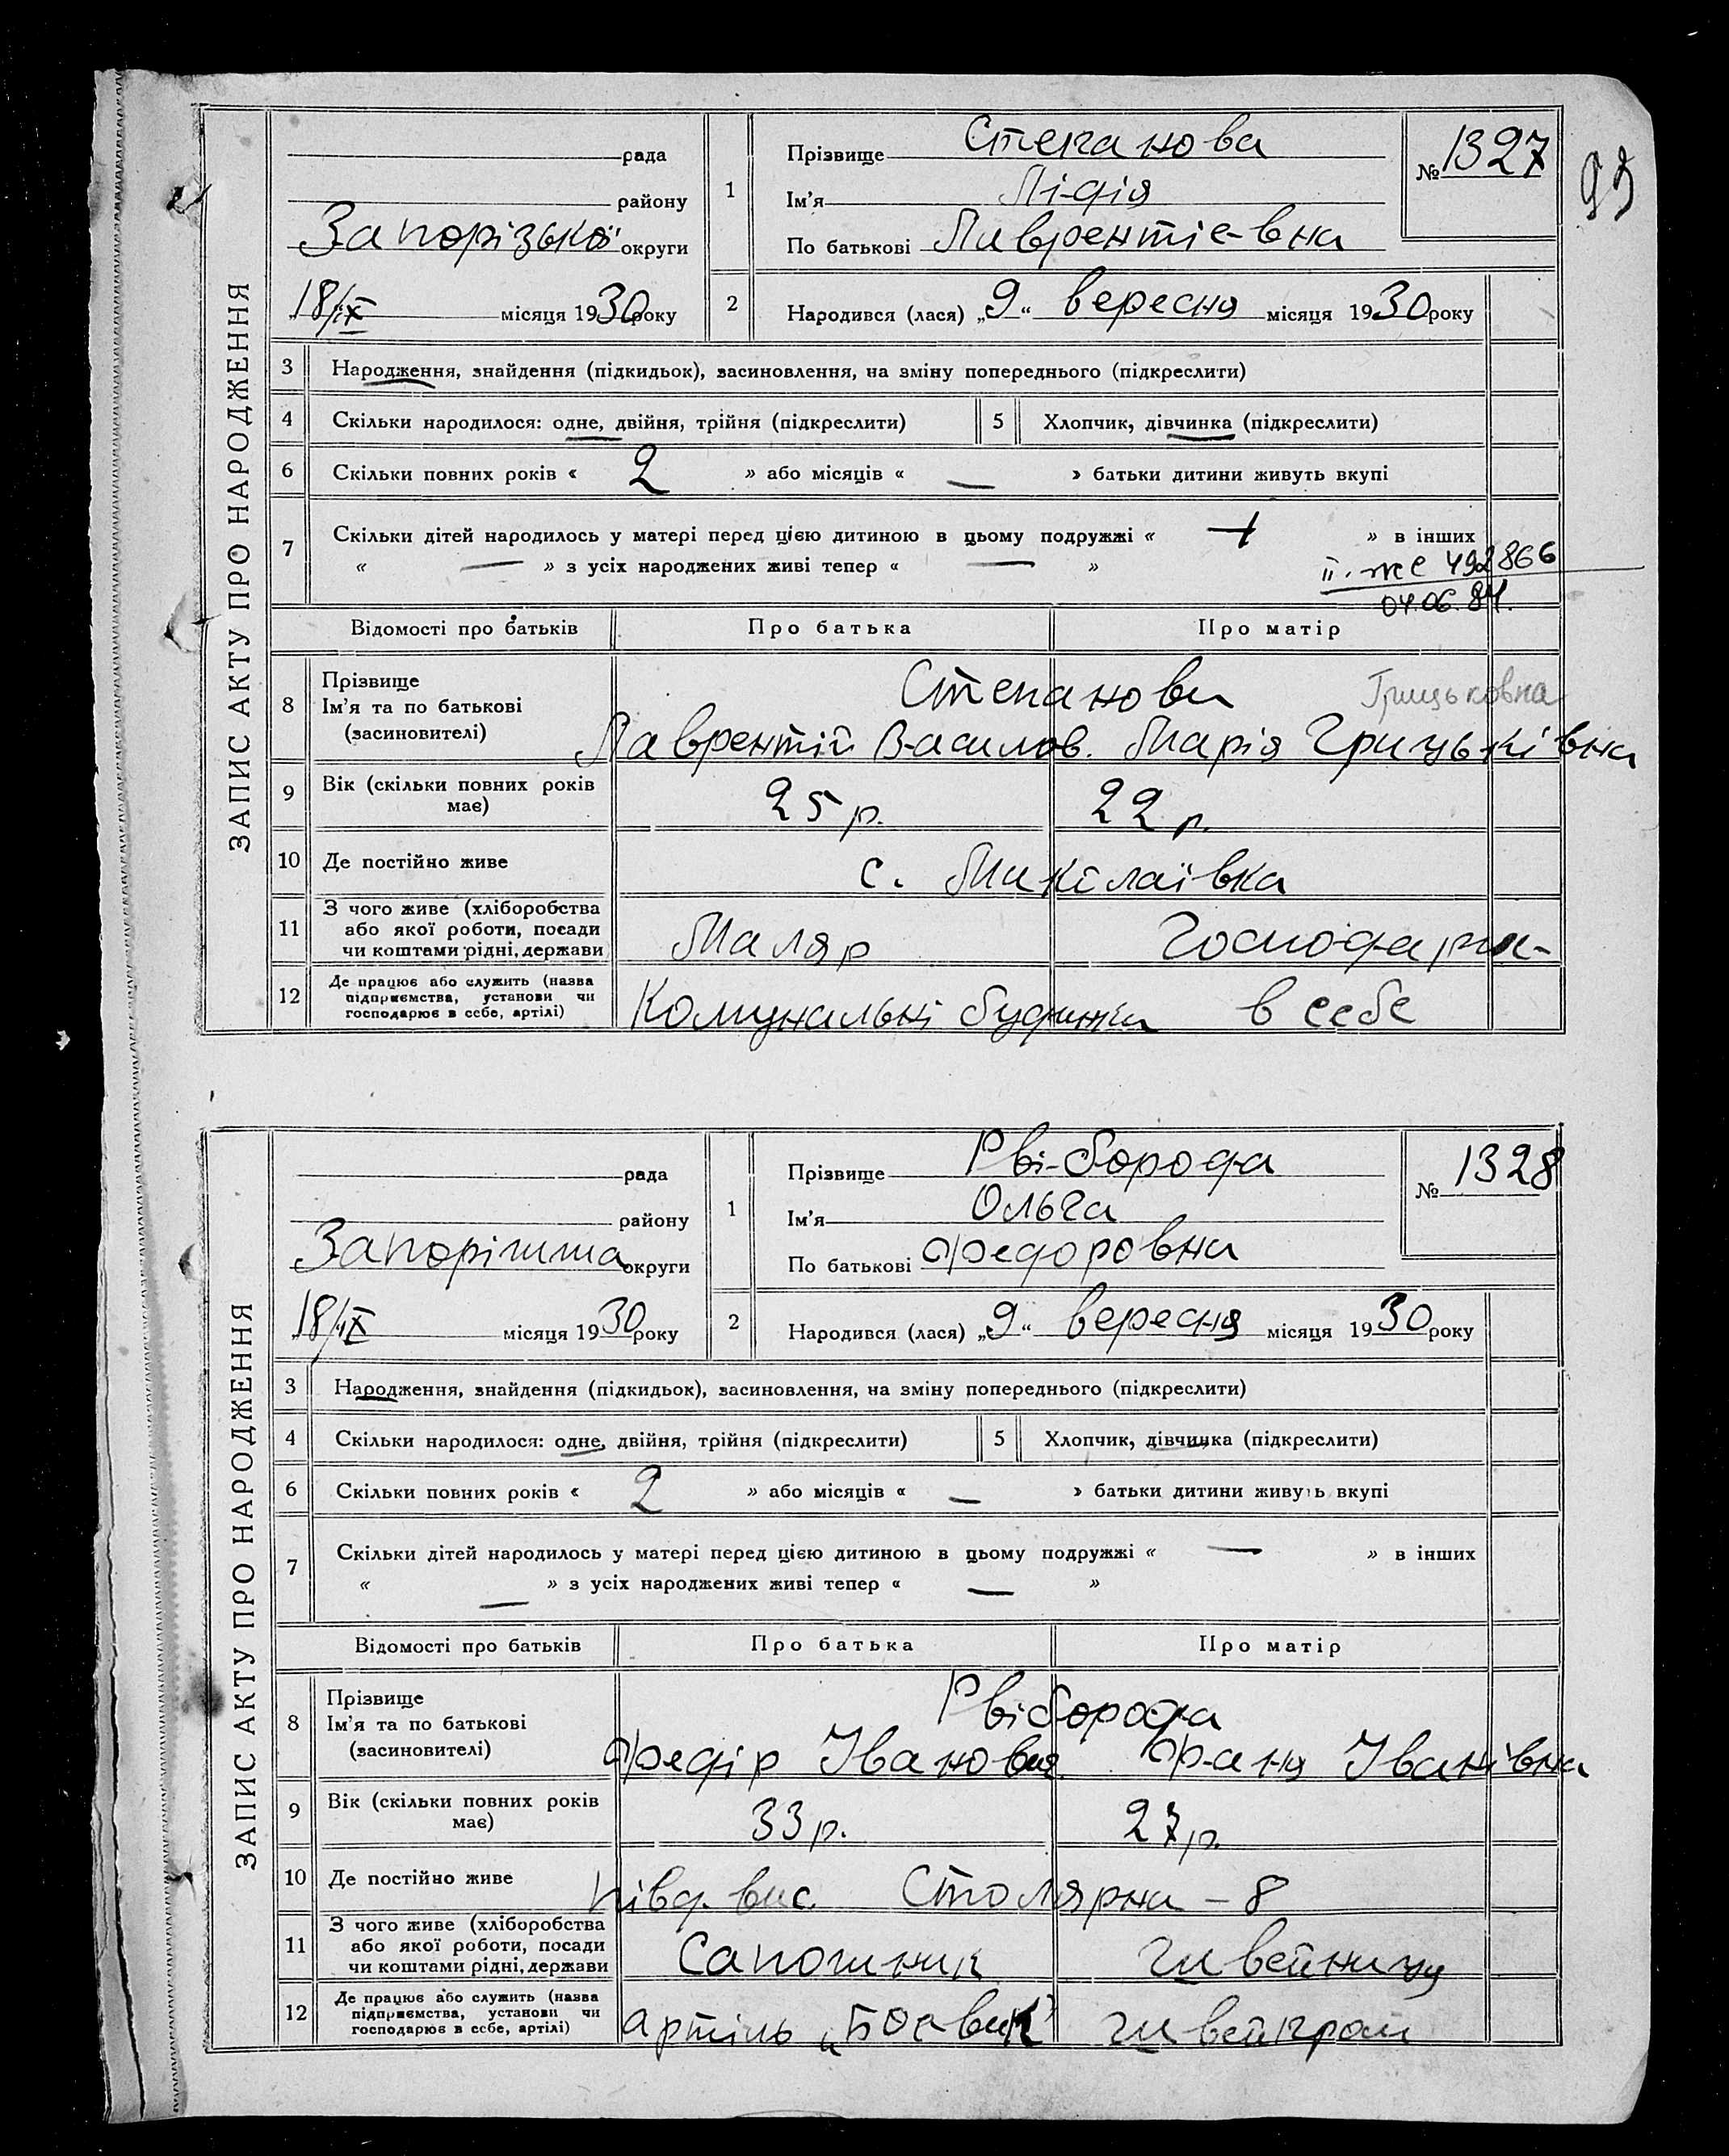 ЗАПИС АКТУ ПРО НАРОДЖЕННЯ
рада
району
Запорізької округи
18/IX місяця 1930 року
1
Прізвище Степанова
Ім'я Лідія
По батькові Лаврентіевна
№ 1327
99
2
Народився (лася) „9“ вересня місяця 1930 року
3 Народження, знайдення (підкидьок), засиновлення, на зміну попереднього (підкреслити)
4 Скільки народилося: одне, двійня, трійня (підкреслити) 5 Хлопчик, дівчинка (підкреслити)
6 Скільки повних років « 2 » або місяців « — » батьки дитини живуть вкупі
7 Скільки дітей народилось у матері перед цією дитиною в цьому подружжі « » в інших
« — » з усіх народжених живі тепер « — »
492866
04.06.84.
Відомості про батьків Про батька Про матір
8 Прізвище
Ім'я та по батькові
(засновителі)
Степанови Грицьковна
Лаврентій Василов. Марія Грицьківна
9 Вік (скільки повних років має) 25 р. 22 р.
10 Де постійно живе с. Миколаївка
11 З чого живе (хліборобства
або якої роботи, посади
чи коштами рідні, держави
Маляр
12 Де працює або служить (назва
підприємства, установи чи
господарює в себе, артілі)
Комунальні будинки в себе
ЗАПИС АКТУ ПРО НАРОДЖЕННЯ
рада
району
Запоріжжа округи
18/IX місяця 1930 року
1
Прізвище Рвіборода
Ім'я Ольга
По батькові Федоровна
№ 1328
2
Народився (лася) „9“ вересня місяця 1930 року
3 Народження, знайдення (підкидьок), засиновлення, на зміну попереднього (підкреслити)
4 Скільки народилося: одне, двійня, трійня (підкреслити) 5 Хлопчик, дівчинка (підкреслити)
6 Скільки повних років « 2 » або місяців « — » батьки дитини живуть вкупі
7 Скільки дітей народилось у матері перед цією дитиною в цьому подружжі « — » в інших
« — » з усіх народжених живі тепер « — »
Відомості про батьків Про батька Про матір
8 Прізвище
Ім'я та по батькові
(засиновителі)
Рвіборода
Федір Іванович Фаня Іванівна
9 Вік (скільки повних років має) 33 р. 27 р.
10 Де постійно живе Півд. вис. Столярна – 8
11 З чого живе (хліборобства
або якої роботи, посади
чи коштами рідні, держави
Сапожник швейниця
12 Де працює або служить (назва
підприємства, установи чи
господарює в себе, артілі)
артіль швейпром